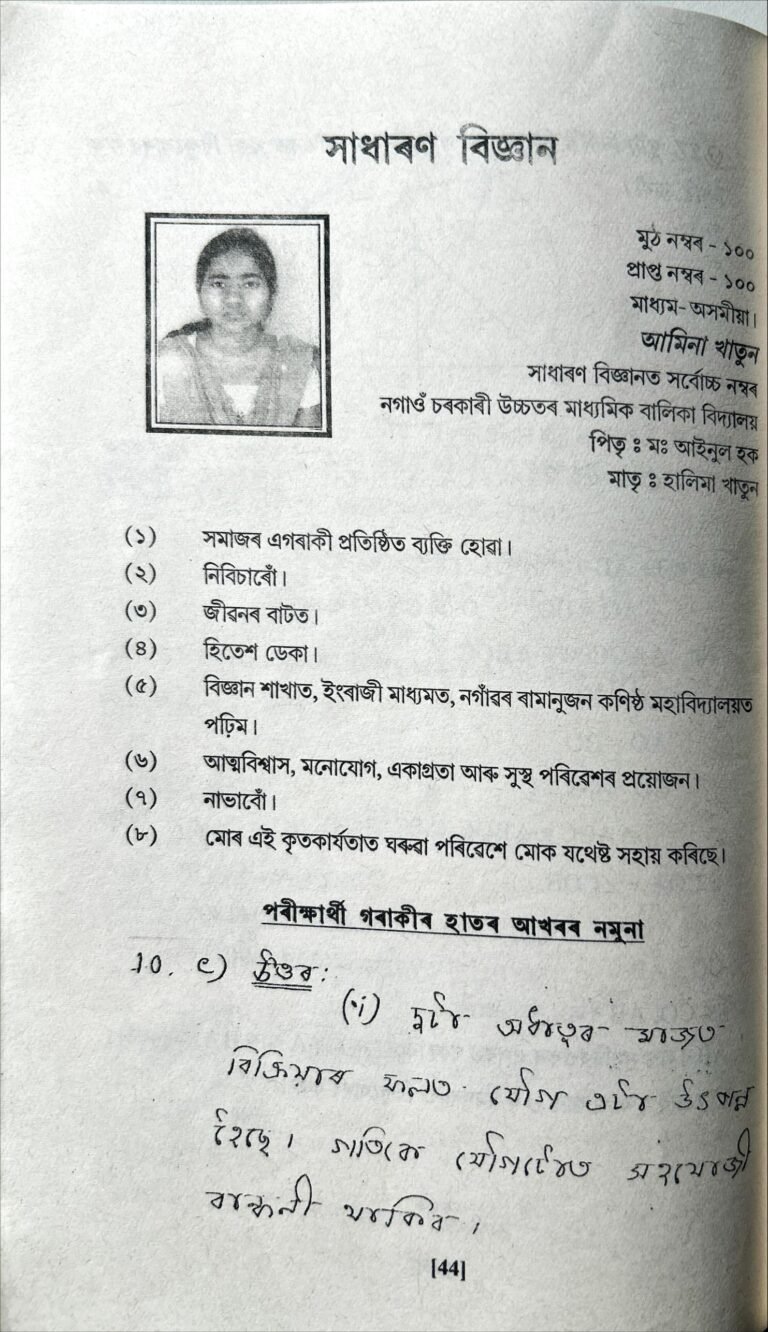 সাধাৰণ বিজ্ঞান
মুঠ নম্বৰ - ১০০
প্ৰাপ্ত নম্বৰ - ১০০
মাধ্যম- অসমীয়া।
আমিনা খাতুন
সাধাৰণ বিজ্ঞানত সৰ্বোচ্চ নম্বৰ
নগাওঁ চৰকাৰী উচ্চতৰ মাধ্যমিক বালিকা বিদ্যালয়
পিতৃ ঃ মঃ আইনুল হক
মাতৃ ঃ হালিমা খাতুন
(১) সমাজৰ এগৰাকী প্ৰতিষ্ঠিত ব্যক্তি হোৱা।
(২) নিবিচাৰোঁ।
(৩) জীৱনৰ বাটত।
(৪) হিতেশ ডেকা।
(৫) বিজ্ঞান শাখাত, ইংৰাজী মাধ্যমত, নগাঁৱৰ ৰামানুজন কণিষ্ঠ মহাবিদ্যালয়ত
পঢ়িম।
(৬) আত্মবিশ্বাস, মনোযোগ, একাগ্ৰতা আৰু সুস্থ পৰিৱেশৰ প্ৰয়োজন।
(৭) নাভাবোঁ।
(৮) মোৰ এই কৃতকাৰ্যতাত ঘৰুৱা পৰিৱেশে মোক যথেষ্ট সহায় কৰিছে।
পৰীক্ষাৰ্থী গৰাকীৰ হাতৰ আখৰৰ নমুনা
10. c) উত্তৰ:
(i) দুটা অধাতুৰ মাজত
বিক্ৰিয়াৰ ফলত যৌগ এটা উৎপন্ন
হৈছে। গতিকে যৌগটোত সহযোজী
বান্ধনী থাকিব।
[44]